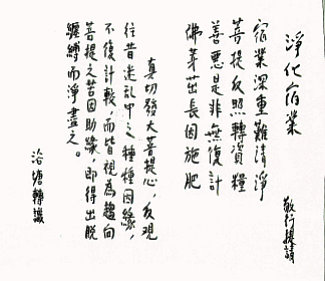 淨化宿業
敬行提請
宿業深重難清淨
菩提反照轉資糧
善惡是非無復計
佛芽茁長因施肥
真切發大菩提心，反觀
往昔迷亂中之種種因緣，
不復計較，而皆視為趨向
菩提之苦因助緣，即得出脫
纏縛而淨盡之。